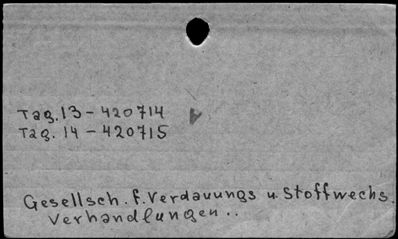 Tag. 13 - 420714
Tag. 14 - 420715
Gesellsch. f. Verdauungs u. Stoffwechs.
Verhandlungen..